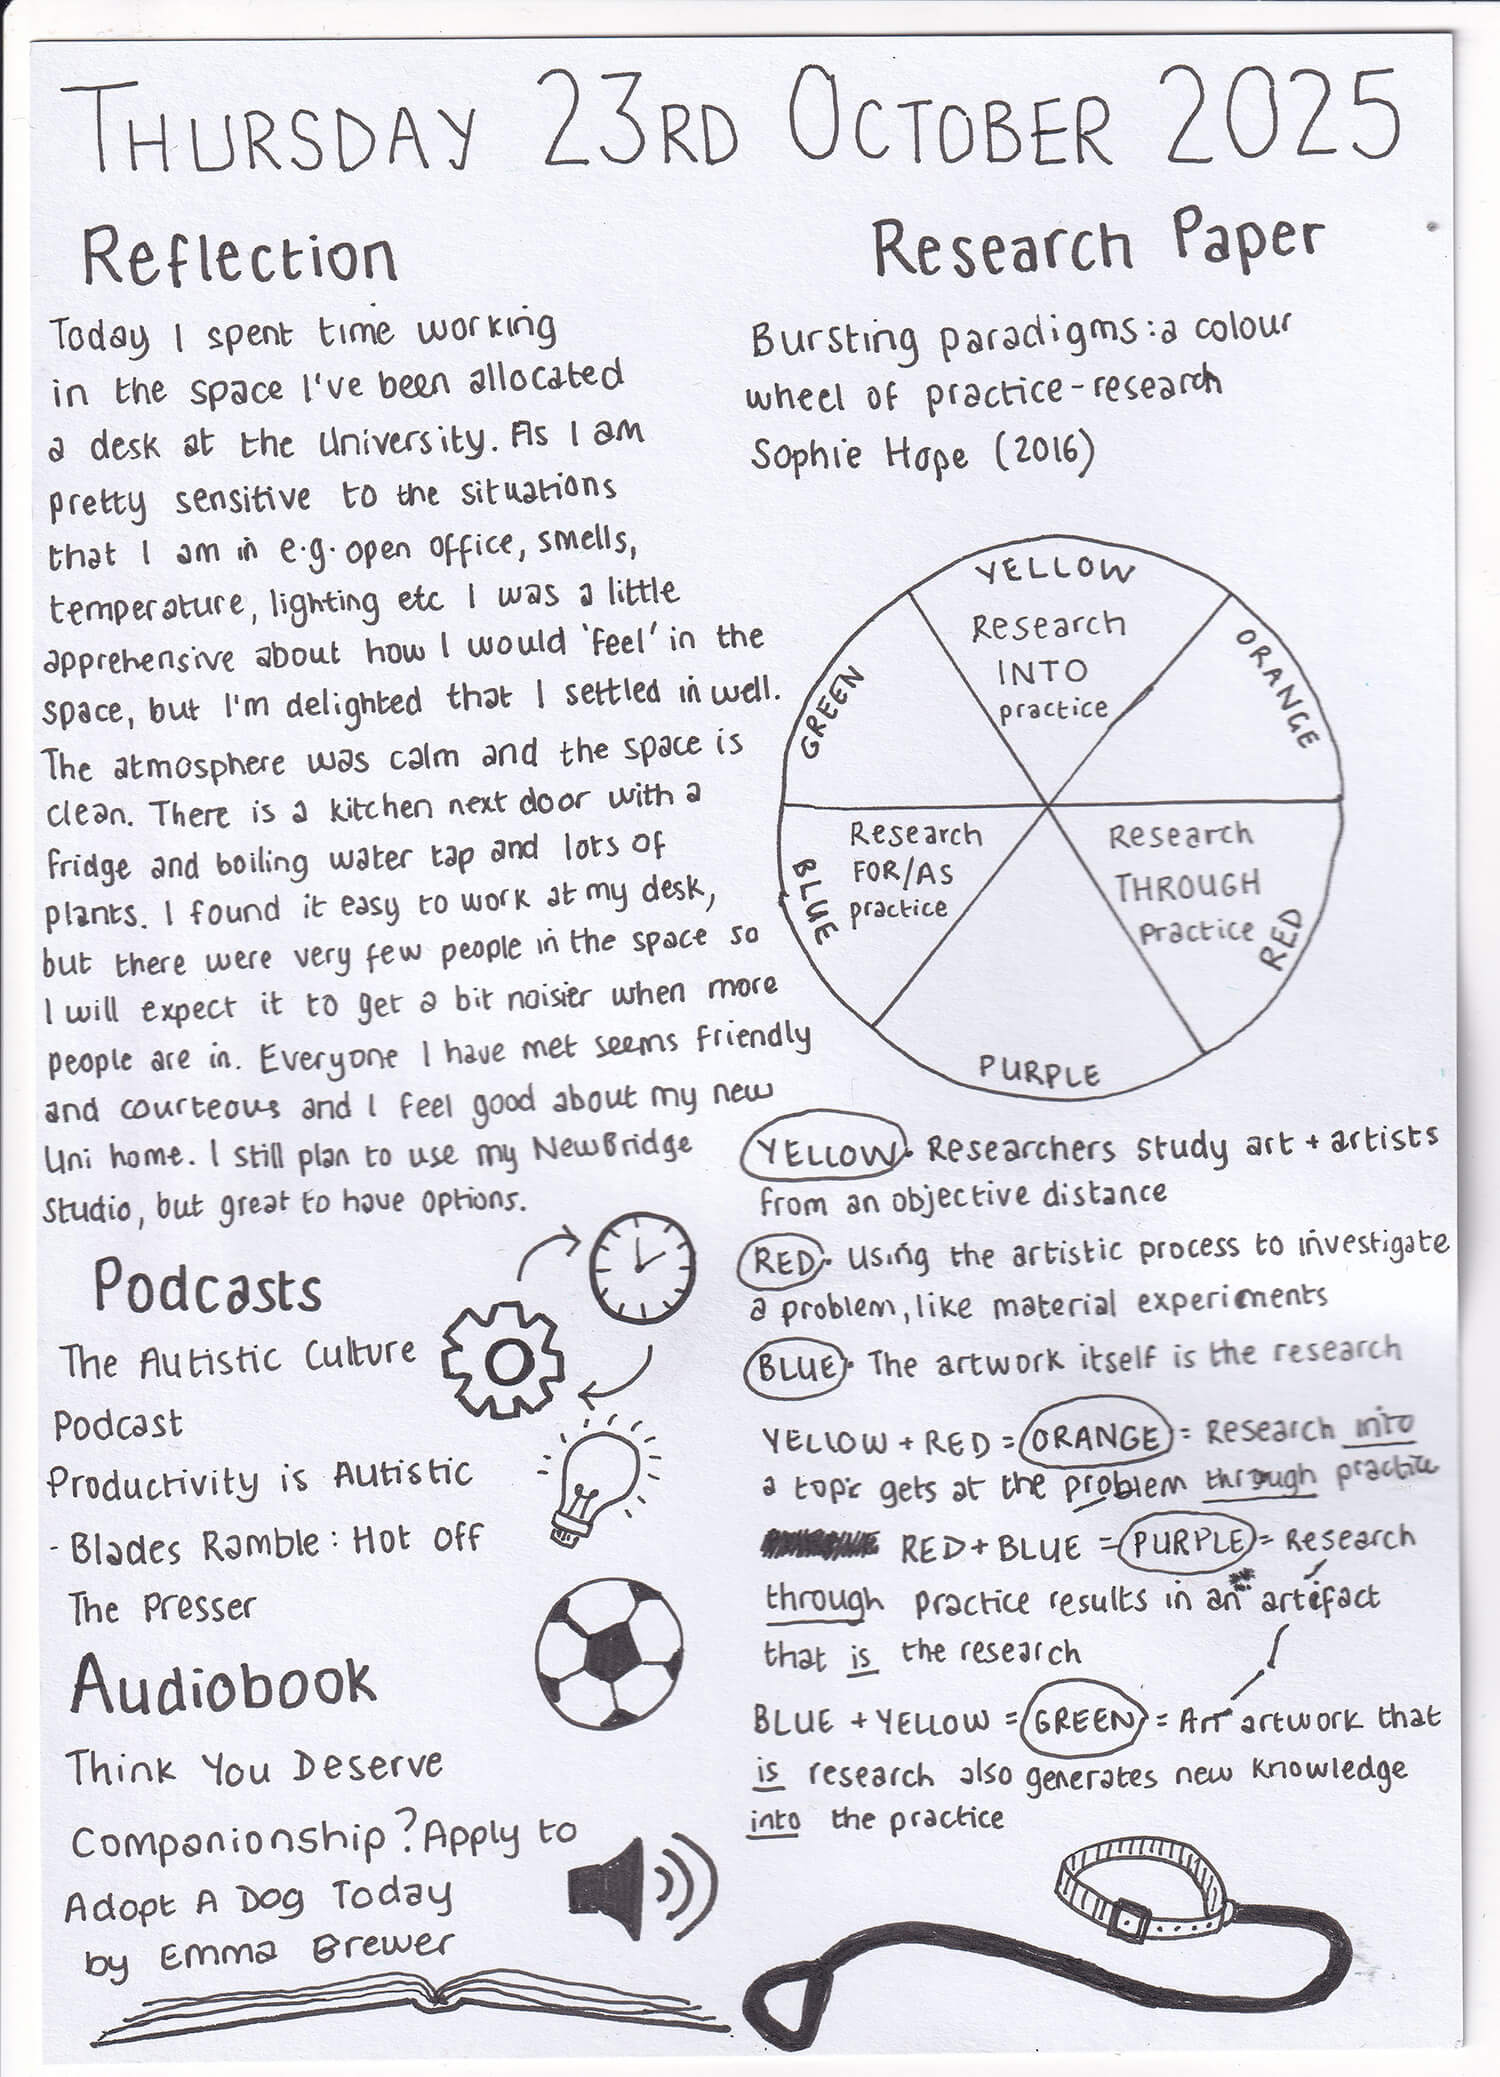 THURSDAY 23RD OCTOBER 2025
Reflection
Today I spent time working
in the space I've been allocated
a desk at the University. As I am
pretty sensitive to the situations
that I am in e.g. open office, smells,
temperature, lighting etc I was a little
apprehensive about how I would 'feel' in the
space, but I'm delighted that I settled in well.
The atmosphere was calm and the space is
clean. There is a kitchen next door with a
fridge and boiling water tap and lots of
plants. I found it easy to work at my desk,
but there were very few people in the space so
I will expect it to get a bit noisier when more
people are in. Everyone I have met seems friendly
and courteous and I feel good about my new
Uni home. I still plan to use my NewBridge
Studio, but great to have options.
Podcasts
The Autistic Culture
Podcast
Productivity is Autistic
- Blades Ramble: Hot Off
The Presser
Audiobook
Think You Deserve
Companionship? Apply to
Adopt A Dog Today
by Emma Brewer
Research Paper
Bursting paradigms: a colour
wheel of practice-research
Sophie Hope (2016)
YELLOW
Research
INTO
practice
ORANGE
GREEN
Research
FOR/AS
practice
BLUE
Research
THROUGH
practice
RED
PURPLE
YELLOW: Researchers study art + artists
from an objective distance
RED: Using the artistic process to investigate
a problem, like material experiments
BLUE: The artwork itself is the research
YELLOW + RED = ORANGE = Research into
a topic gets at the problem through practice
RED + BLUE = PURPLE = Research
through practice results in an artefact
that is the research
BLUE + YELLOW = GREEN = Art artwork that
is research also generates new knowledge
into the practice